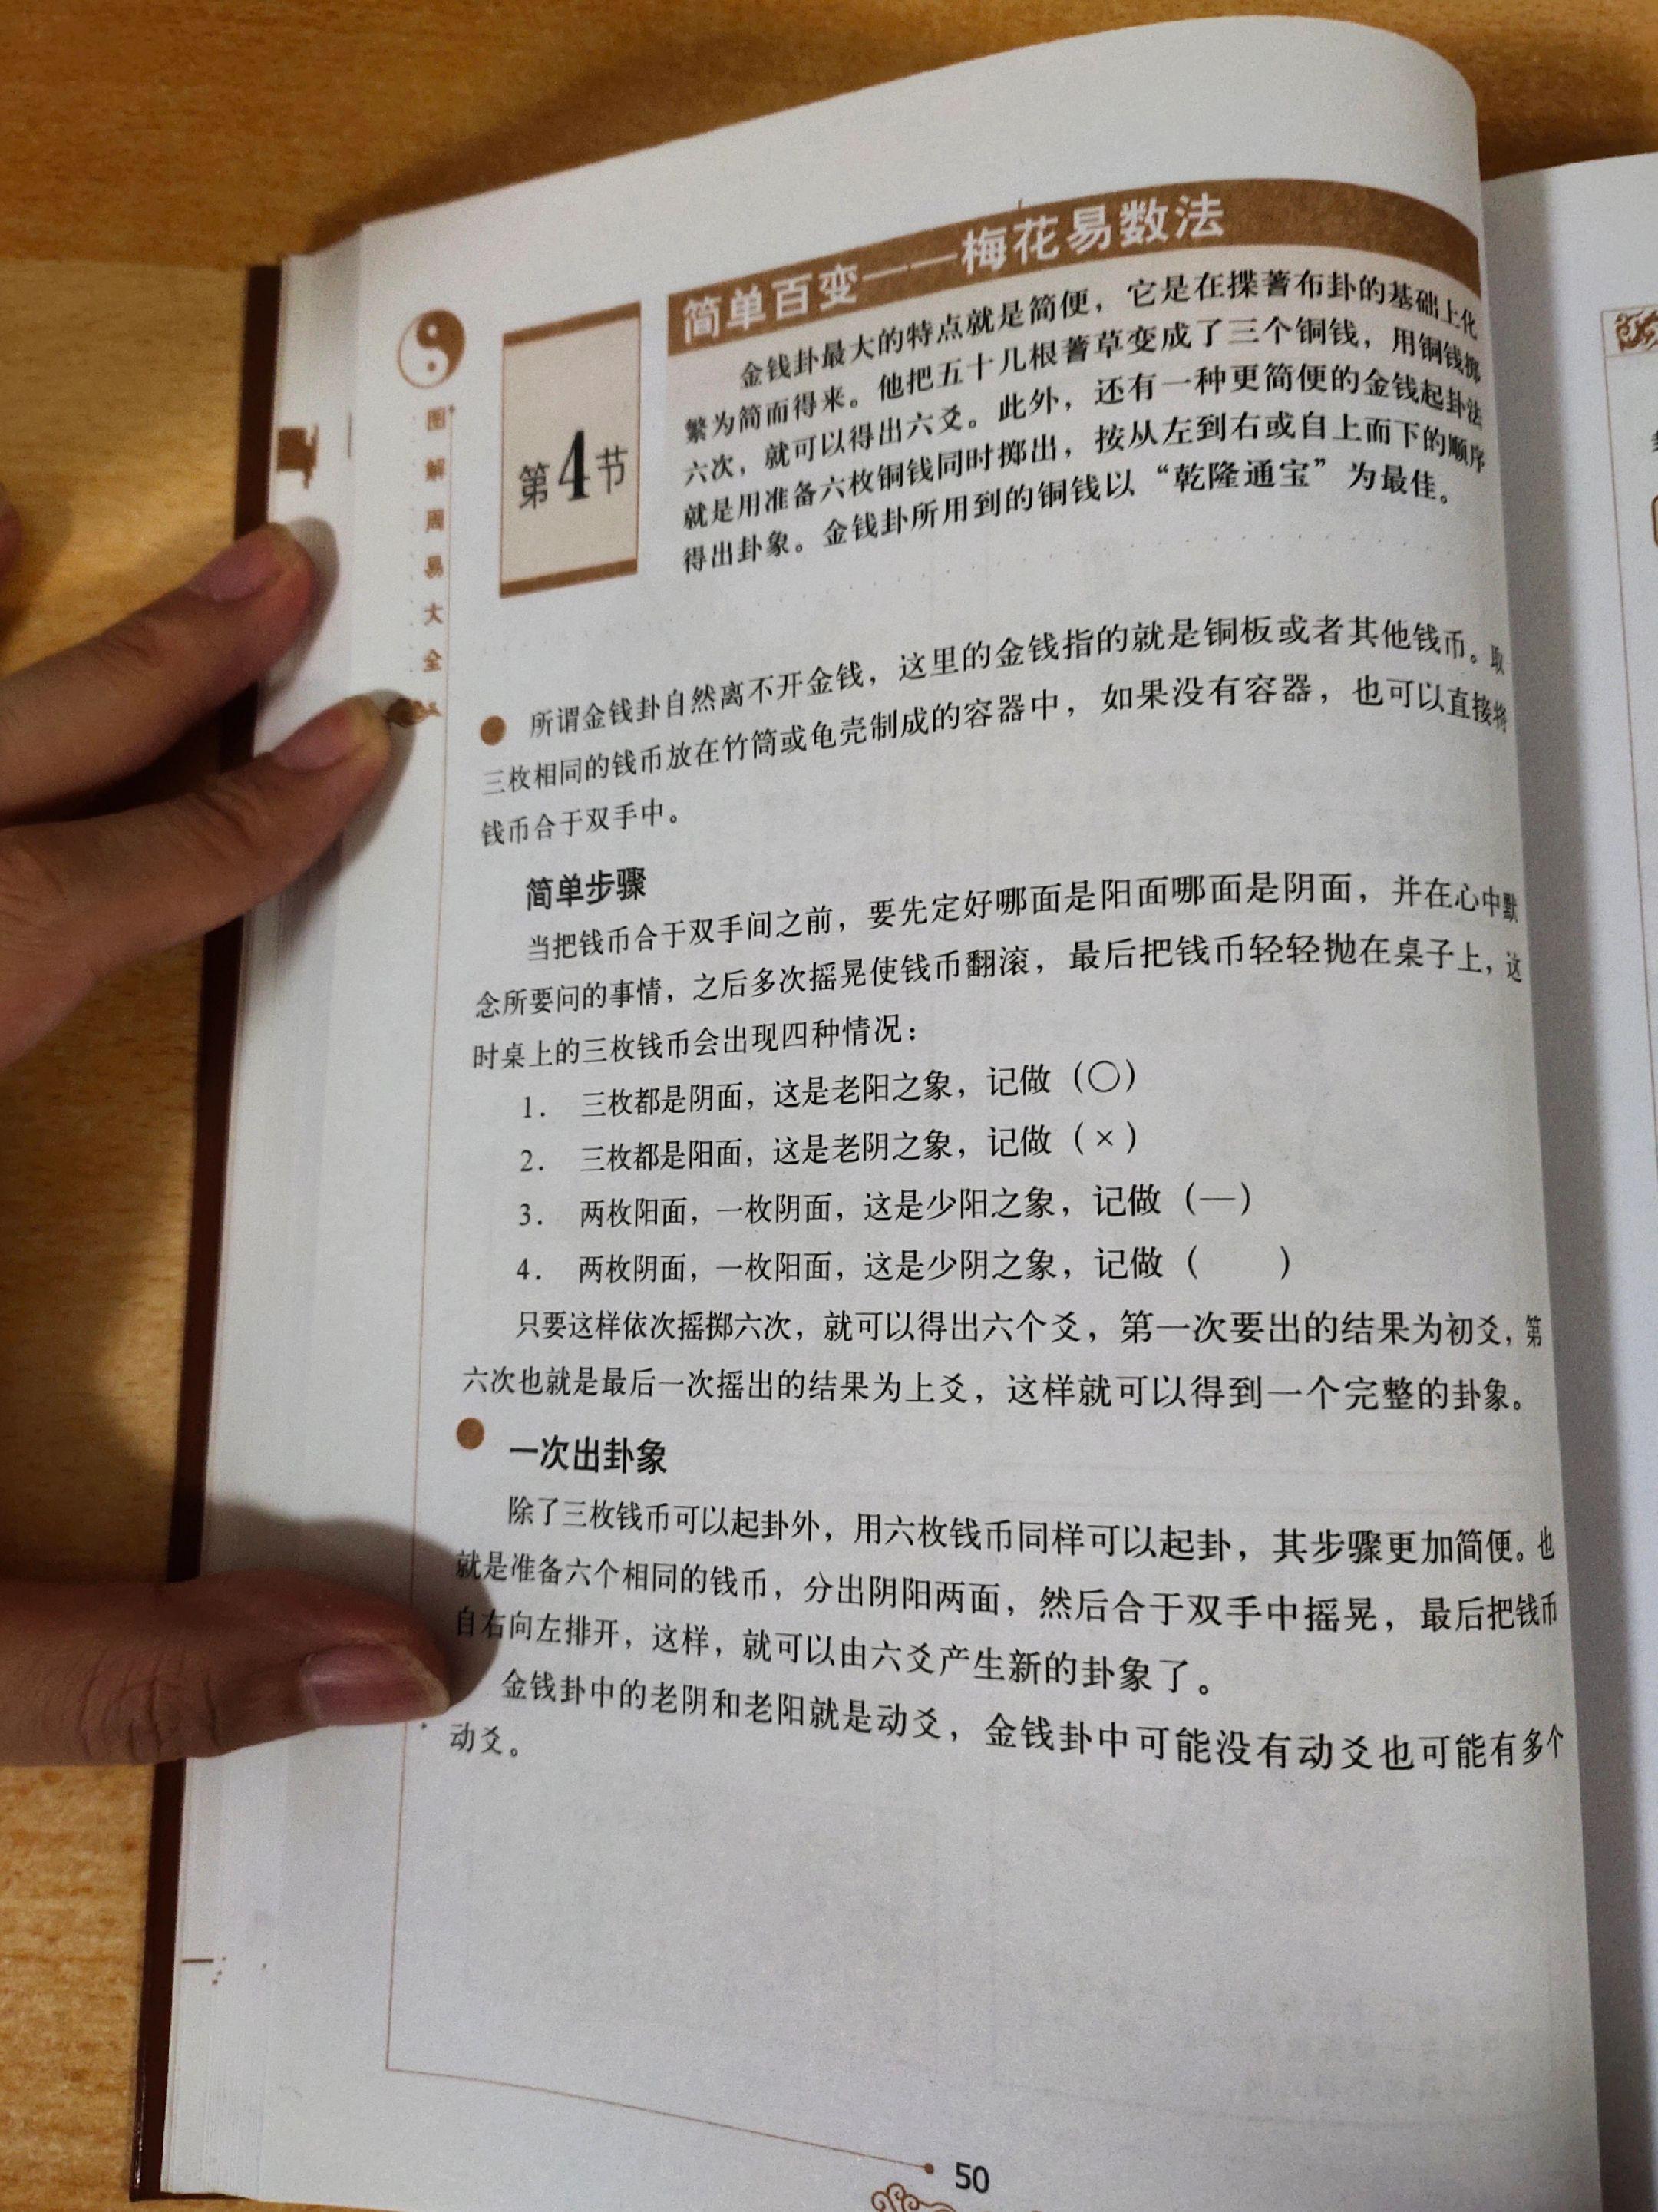 简单百变——梅花易数法
第4节
金钱卦最大的特点就是简便，它是在揲蓍布卦的基础上化
繁为简而得来。他把五十几根蓍草变成了三个铜钱，用铜钱掷
六次，就可以得出六爻。此外，还有一种更简便的金钱起卦法
就是用准备六枚铜钱同时掷出，按从左到右或自上而下的顺序
得出卦象。金钱卦所用到的铜钱以“乾隆通宝”为最佳。
图解周易大全
所谓金钱卦自然离不开金钱，这里的金钱指的就是铜板或者其他钱币。取
三枚相同的钱币放在竹筒或龟壳制成的容器中，如果没有容器，也可以直接将
钱币合于双手中。
简单步骤
当把钱币合于双手间之前，要先定好哪面是阳面哪面是阴面，并在心中默
念所要问的事情，之后多次摇晃使钱币翻滚，最后把钱币轻轻抛在桌子上，这
时桌上的三枚钱币会出现四种情况：
1. 三枚都是阴面，这是老阳之象，记做（○）
2. 三枚都是阳面，这是老阴之象，记做（×）
3. 两枚阳面，一枚阴面，这是少阳之象，记做（—）
4. 两枚阴面，一枚阳面，这是少阴之象，记做（　　）
只要这样依次摇掷六次，就可以得出六个爻，第一次要出的结果为初爻，第
六次也就是最后一次摇出的结果为上爻，这样就可以得到一个完整的卦象。
一次出卦象
除了三枚钱币可以起卦外，用六枚钱币同样可以起卦，其步骤更加简便。也
就是准备六个相同的钱币，分出阴阳两面，然后合于双手中摇晃，最后把钱币
自右向左排开，这样，就可以由六爻产生新的卦象了。
金钱卦中的老阴和老阳就是动爻，金钱卦中可能没有动爻也可能有多个
动爻。
50